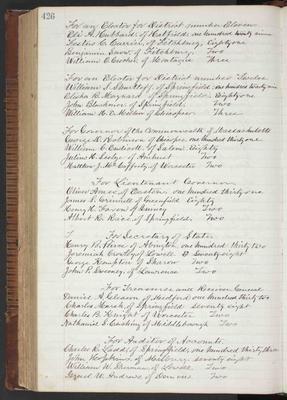 426
For an Elector for District number Eleven
Eli A. Hubbard of Hatfield, one hundred thirty nine
Festus C. Currier, of Fitchburg, Eighty one
Benjamin Snow, of Fitchburg, Two
William O. Crocker of Montague Three
For an Elector for District number Twelve
William S. Shurtleff, of Springfield, one hundred thirty nine
Elisha B. Maynard of Springfield, Eighty one
John Blackmer of Springfield, Two
William H. of Chicopee, Three
For Governor of the Commonwealth of Massachusetts
George D. Robinson of Chicopee, one hundred thirty one
William C. Endicott, of Salem Eighty
Julius H. Seelye of Amherst Two
Matthew J. McCafferty of Worcester Two
For Lieutenant Governor
Oliver Ames of Easton, one hundred thirty one
James S. Grinnell of Greenfield Eighty
Henry H. Faxon of Quincy Two
Albert H. Rice of Springfield, Two
For Secretary of State
Henry B. Peirce of Abington, one hundred thirty two
Jeremiah Crowley of Lowell
George Kempton of Sharon Two
John P. Sweeney, of Lawrence Two
For Treasurer and Receiver General
Daniel A. Gleason of Medford, one hundred thirty two
Charles Marsh, of Springfield seventy eight
Charles B. Knight of Worcester Two
Nathaniel S. Cushing of Middleborough Two
For Auditor of Accounts.
Charles R. Ladd of Springfield, one hundred thirty three
John Hopkins, of Millbury, seventy eight
William W. Sherman, of Lowell Two
Israel W. Andrews of Danvers Two